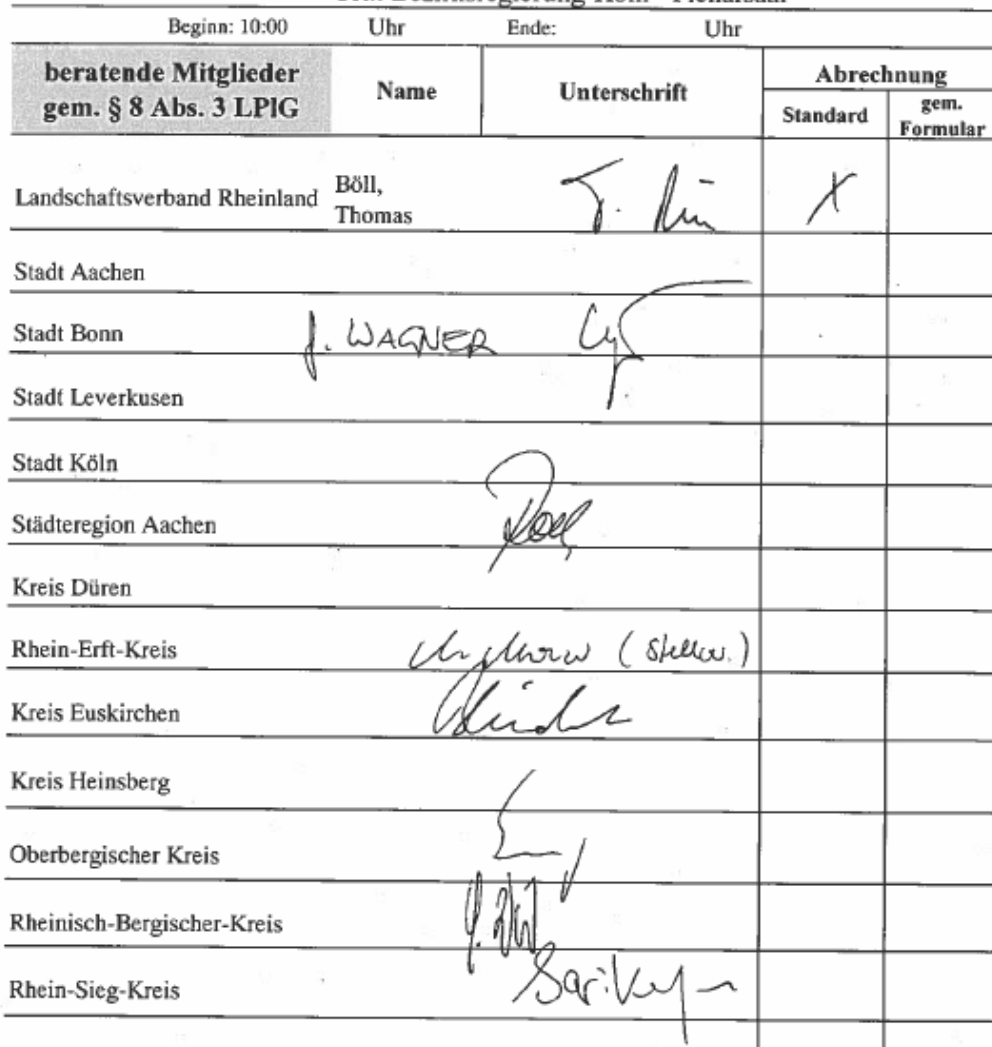 Beginn: 10:00 Uhr Ende: Uhr
beratende Mitglieder
gem. § 8 Abs. 3 LPlG
Name
Unterschrift
Abrechnung
Standard
gem.
Formular
Landschaftsverband Rheinland
Böll,
Thomas
X
Stadt Aachen
Stadt Bonn J. WAGNER
Stadt Leverkusen
Stadt Köln
Städteregion Aachen
Kreis Düren
Rhein-Erft-Kreis
Kreis Euskirchen
Kreis Heinsberg
Oberbergischer Kreis
Rheinisch-Bergischer-Kreis
Rhein-Sieg-Kreis